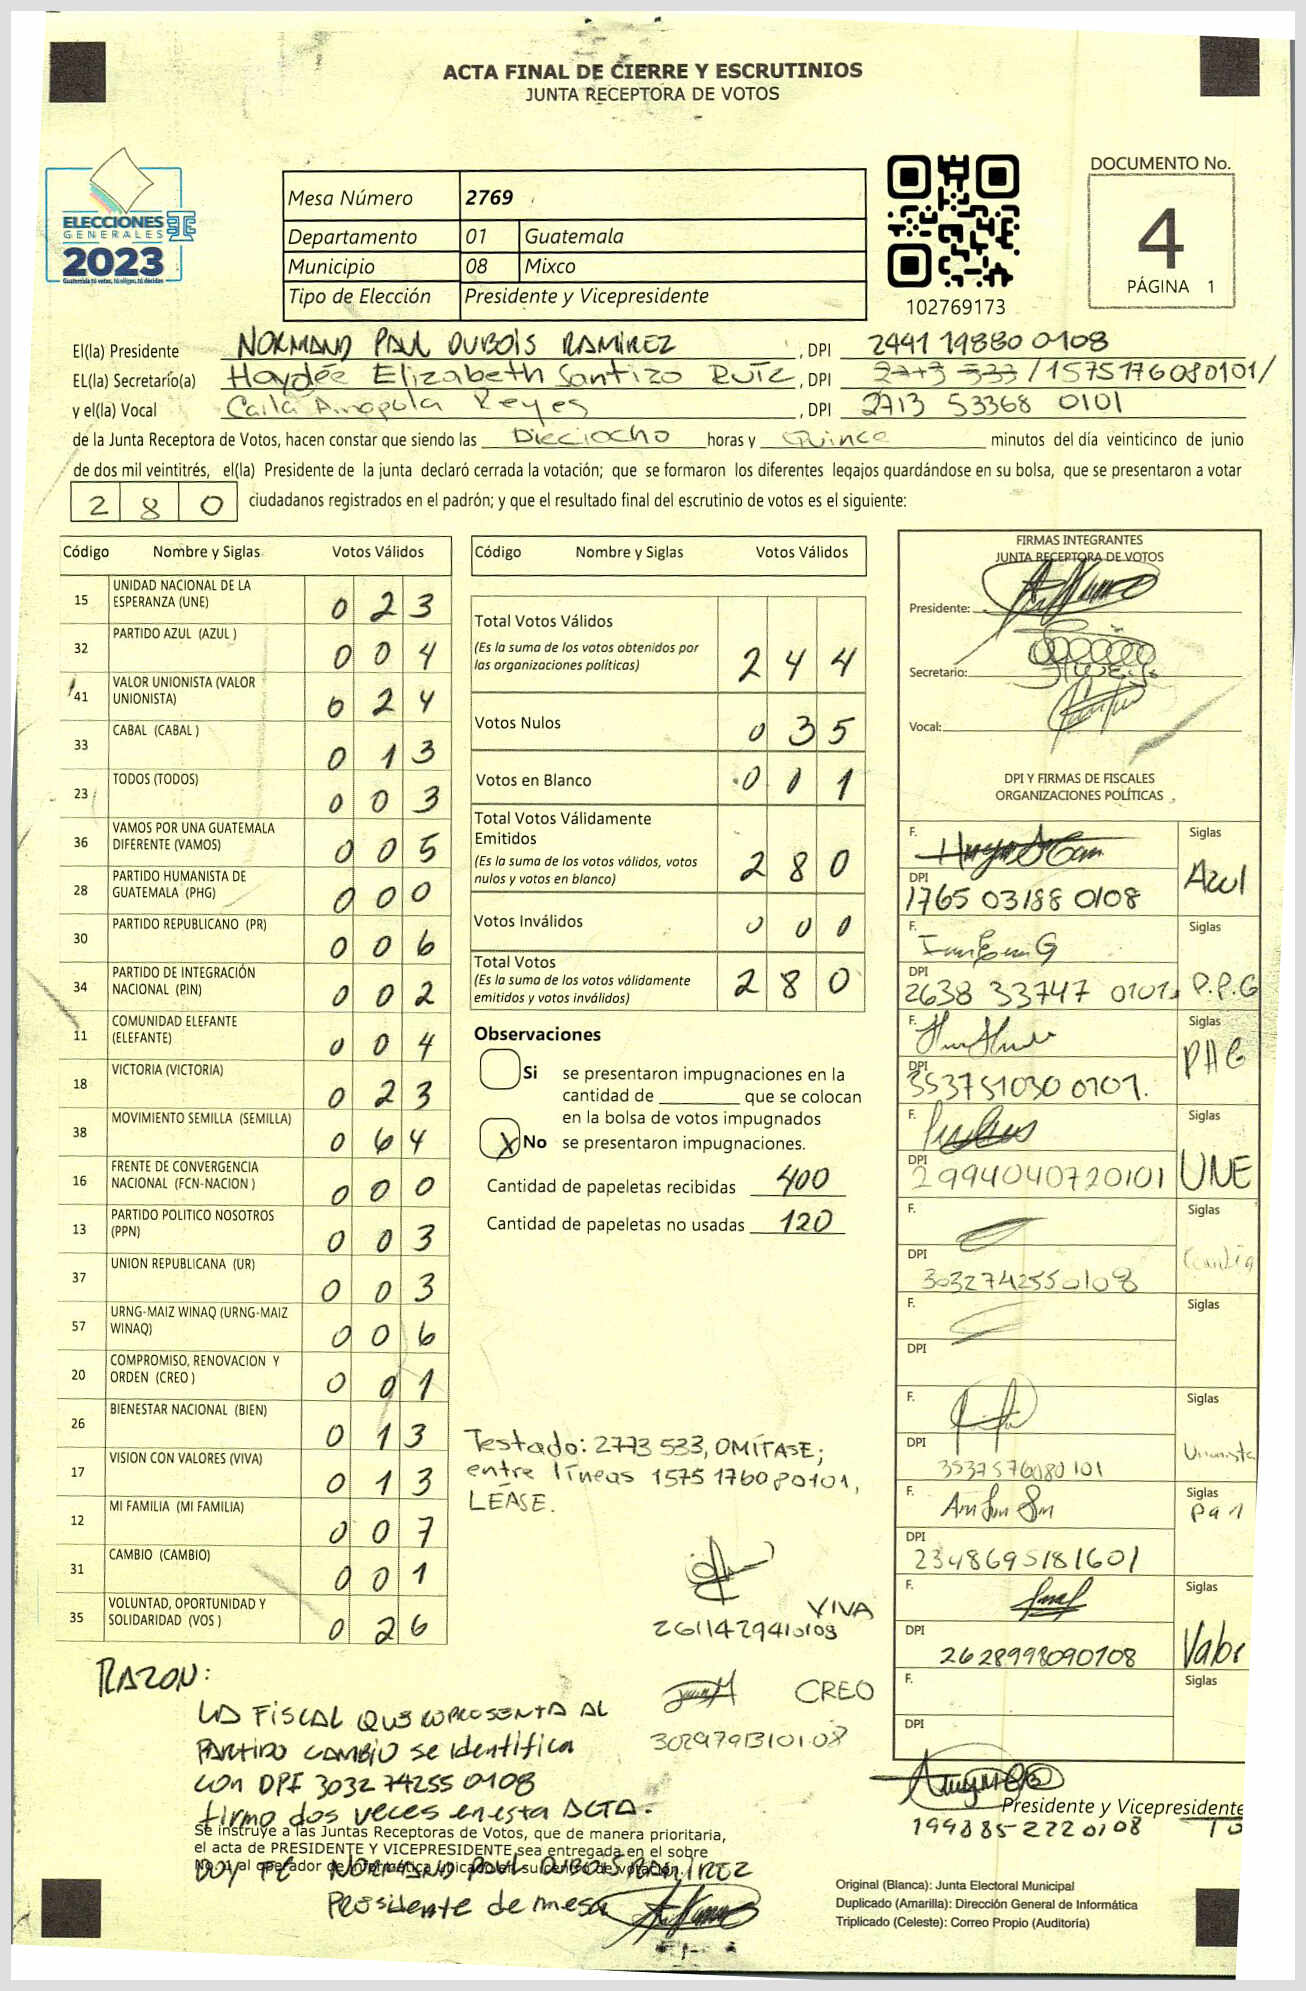 ACTA FINAL DE CIERRE Y ESCRUTINIOS
JUNTA RECEPTORA DE VOTOS
ELECCIONES
GENERALES
2023
Guatemala tú votas, tú eliges, tú decides
Mesa Número 2769
Departamento 01 Guatemala
Municipio 08 Mixco
Tipo de Elección Presidente y Vicepresidente
102769173
DOCUMENTO No.
4
PÁGINA 1
El(la) Presidente NORMAND PAUL DUBOIS RAMIREZ, DPI 2441 19880 0108
EL(la) Secretario(a) Haydée Elizabeth Santizo Ruiz, DPI 2773 533 /1575176080101/
y el(la) Vocal Carla Amapola Reyes, DPI 2713 53368 0101
de la Junta Receptora de Votos, hacen constar que siendo las Dieciocho horas y Quince minutos del día veinticinco de junio
de dos mil veintitrés, el(la) Presidente de la junta declaró cerrada la votación; que se formaron los diferentes legajos guardándose en su bolsa, que se presentaron a votar
280 ciudadanos registrados en el padrón; y que el resultado final del escrutinio de votos es el siguiente:
Código Nombre y Siglas Votos Válidos
15 UNIDAD NACIONAL DE LA ESPERANZA (UNE) 023
32 PARTIDO AZUL (AZUL ) 004
41 VALOR UNIONISTA (VALOR UNIONISTA) 024
33 CABAL (CABAL ) 013
23 TODOS (TODOS) 003
36 VAMOS POR UNA GUATEMALA DIFERENTE (VAMOS) 005
28 PARTIDO HUMANISTA DE GUATEMALA (PHG) 000
30 PARTIDO REPUBLICANO (PR) 006
34 PARTIDO DE INTEGRACIÓN NACIONAL (PIN) 002
11 COMUNIDAD ELEFANTE (ELEFANTE) 004
18 VICTORIA (VICTORIA) 023
38 MOVIMIENTO SEMILLA (SEMILLA) 064
16 FRENTE DE CONVERGENCIA NACIONAL (FCN-NACION ) 000
13 PARTIDO POLITICO NOSOTROS (PPN) 003
37 UNION REPUBLICANA (UR) 003
57 URNG-MAIZ WINAQ (URNG-MAIZ WINAQ) 006
20 COMPROMISO, RENOVACION Y ORDEN (CREO ) 001
26 BIENESTAR NACIONAL (BIEN) 013
17 VISION CON VALORES (VIVA) 013
12 MI FAMILIA (MI FAMILIA) 007
31 CAMBIO (CAMBIO) 001
35 VOLUNTAD, OPORTUNIDAD Y SOLIDARIDAD (VOS ) 026
Código Nombre y Siglas Votos Válidos
Total Votos Válidos 244
(Es la suma de los votos obtenidos por
las organizaciones políticas)
Votos Nulos 035
Votos en Blanco 001
Total Votos Válidamente
Emitidos 280
(Es la suma de los votos válidos, votos
nulos y votos en blanco)
Votos Inválidos 000
Total Votos 280
(Es la suma de los votos válidamente
emitidos y votos inválidos)
Observaciones
Si se presentaron impugnaciones en la
cantidad de ________ que se colocan
en la bolsa de votos impugnados
X No se presentaron impugnaciones.
Cantidad de papeletas recibidas 400
Cantidad de papeletas no usadas 120
Testado: 2773 533, OMÍTASE;
entre líneas 1575 1760 80101,
LÉASE.
VIVA
2611429410108
CREO
3029791310108
FIRMAS INTEGRANTES
JUNTA RECEPTORA DE VOTOS
Presidente:
Secretario:
Vocal:
DPI Y FIRMAS DE FISCALES
ORGANIZACIONES POLÍTICAS
F. Siglas Azul
DPI 1765 03188 0108
F. Siglas P.P.G
DPI 2638 33747 0101
F. Siglas PHG
DPI 353751030 0101.
F. Siglas UNE
DPI 2994040720101
F. Siglas
DPI 3032742550108
F. Siglas
DPI
F. Siglas Unionista
DPI 3537576080101
F. Siglas
DPI 2348695181601
F. Siglas Valor
DPI 2628998090108
F. Siglas
DPI
1998852220108
Presidente y Vicepresidente
RAZON:
LA FISCAL QUE REPRESENTA AL
PARTIDO CAMBIO se identifica
con DPI 3032 74255 0108
firmo dos veces en esta ACTA.
Se instruye a las Juntas Receptoras de Votos, que de manera prioritaria,
el acta de PRESIDENTE Y VICEPRESIDENTE sea entregada en el sobre
No. 1 al operador de informática ubicado en su centro de votación.
DOY FE NORMAND PAUL DUBOIS RAMIREZ
Presidente de mesa
Original (Blanca): Junta Electoral Municipal
Duplicado (Amarilla): Dirección General de Informática
Triplicado (Celeste): Correo Propio (Auditoría)